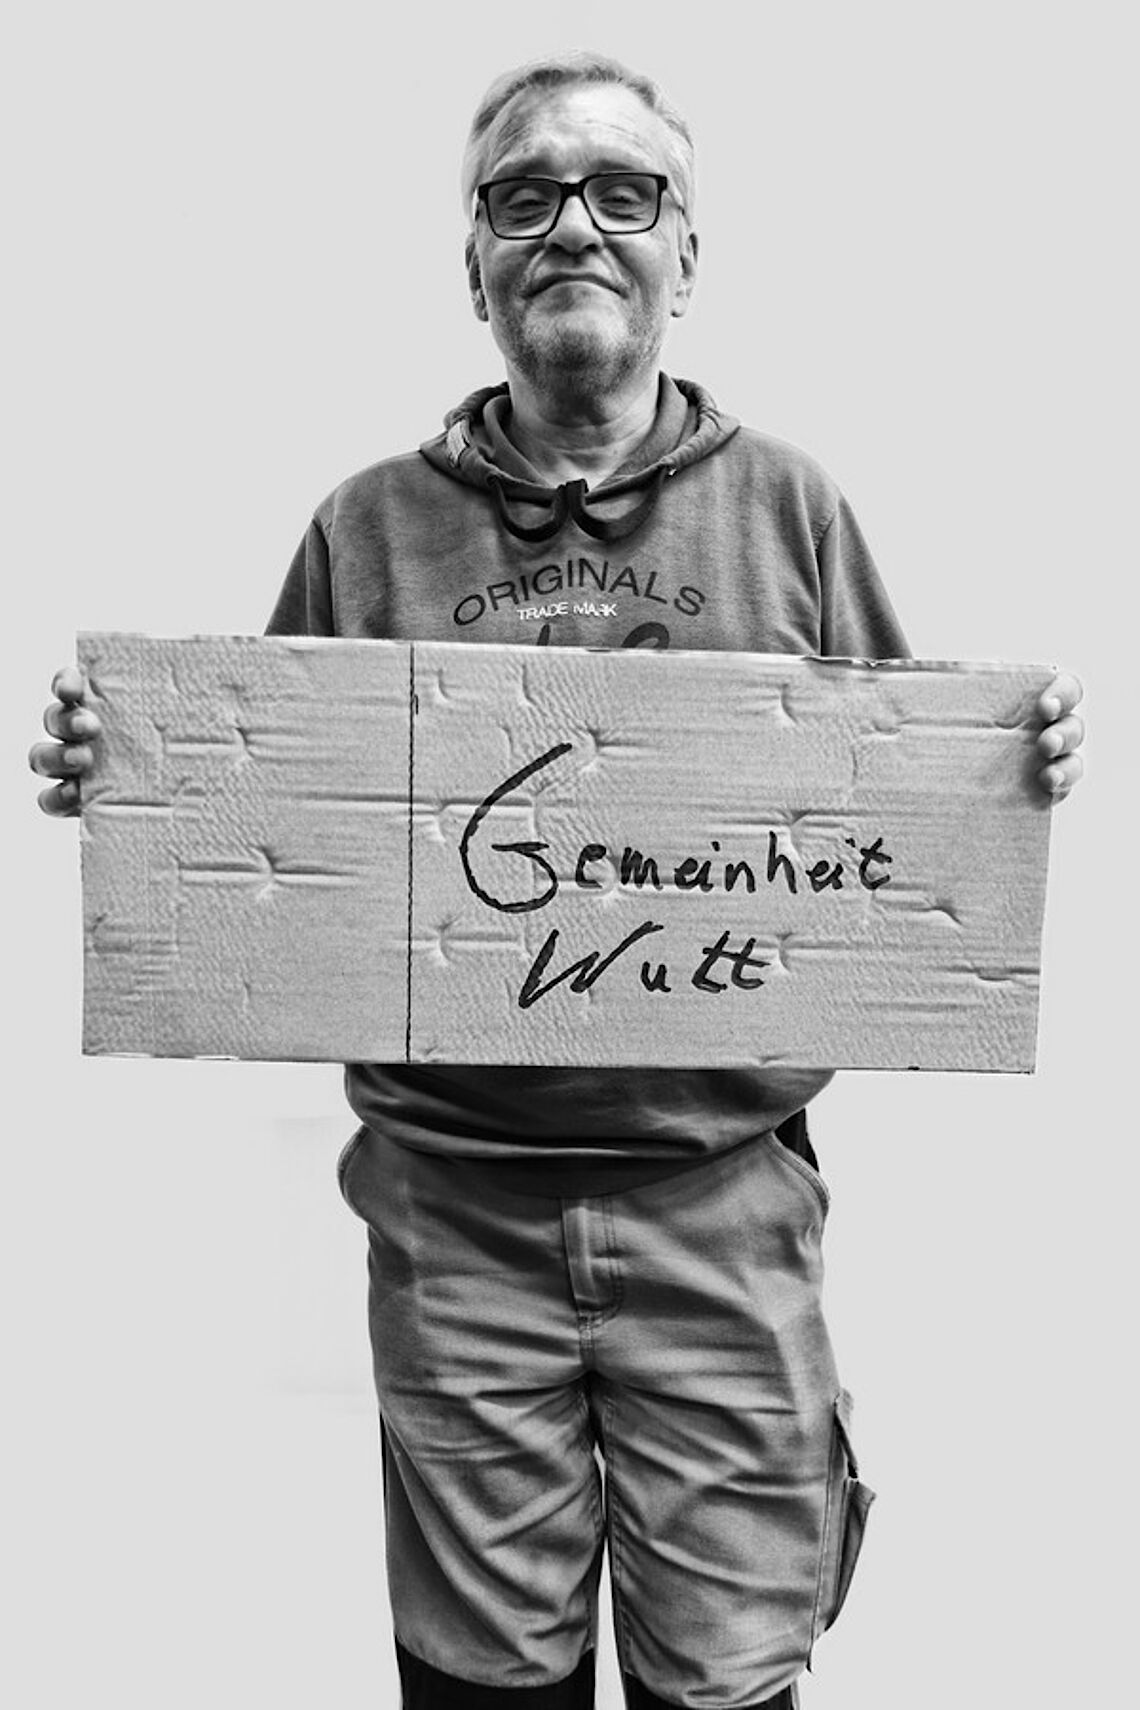 ORIGINALS
TRADE MARK
Gemeinheit
Wutt